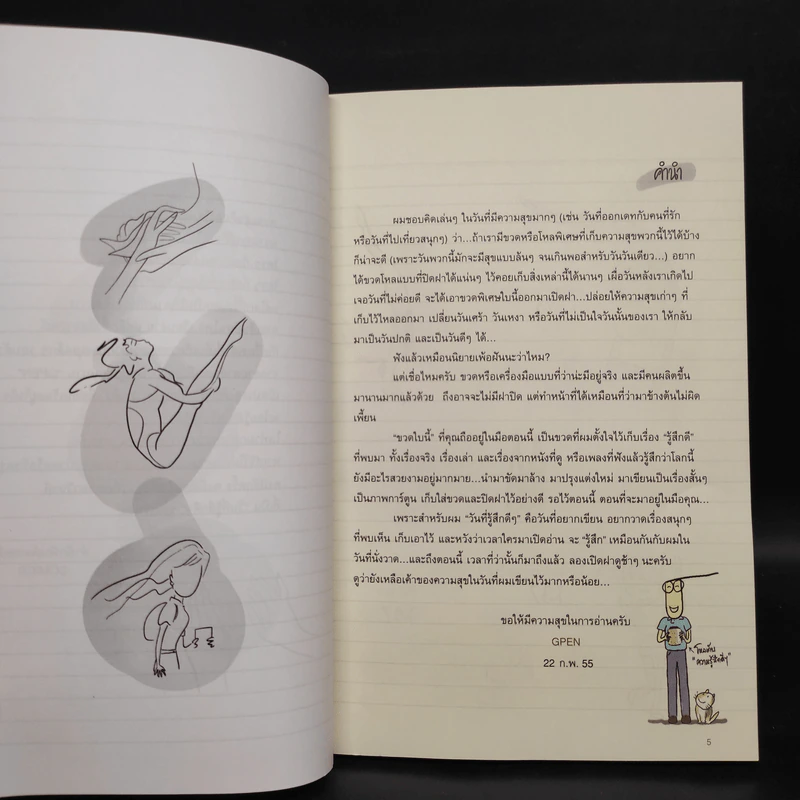 คำนำ
ผมชอบคิดเล่นๆ ในวันที่มีความสุขมากๆ (เช่น วันที่ออกเดทกับคนที่รัก
หรือวันที่ไปเที่ยวสนุกๆ) ว่า...ถ้าเรามีขวดหรือโหลพิเศษที่เก็บความสุขพวกนี้ไว้ได้บ้าง
ก็น่าจะดี (เพราะวันพวกนี้มักจะมีสุขแบบล้นๆ จนเกินพอสำหรับวันวันเดียว...) อยาก
ได้ขวดโหลแบบที่ปิดฝาได้แน่นๆ ไว้คอยเก็บสิ่งเหล่านี้ได้นานๆ เผื่อวันหลังเราเกิดไป
เจอวันที่ไม่ค่อยดี จะได้เอาขวดพิเศษใบนี้ออกมาเปิดฝา...ปล่อยให้ความสุขเก่าๆ ที่
เก็บไว้ไหลออกมา เปลี่ยนวันเศร้า วันเหงา หรือวันที่ไม่เป็นใจวันนั้นของเรา ให้กลับ
มาเป็นวันปกติ และเป็นวันดีๆ ได้...
ฟังแล้วเหมือนนิยายเพ้อฝันนะว่าไหม?
แต่เชื่อไหมครับ ขวดหรือเครื่องมือแบบที่ว่าน่ะมีอยู่จริง และมีคนผลิตขึ้น
มานานมากแล้วด้วย ถึงอาจจะไม่มีฝาปิด แต่ทำหน้าที่ได้เหมือนที่ว่ามาข้างต้นไม่ผิด
เพี้ยน
"ขวดใบนี้" ที่คุณถืออยู่ในมือตอนนี้ เป็นขวดที่ผมตั้งใจไว้เก็บเรื่อง "รู้สึกดี"
ที่พบมา ทั้งเรื่องจริง เรื่องเล่า และเรื่องจากหนังที่ดู หรือเพลงที่ฟังแล้วรู้สึกว่าโลกนี้
ยังมีอะไรสวยงามอยู่มากมาย...นำมาขัดมาล้าง มาปรุงแต่งใหม่ มาเขียนเป็นเรื่องสั้นๆ
เป็นภาพการ์ตูน เก็บใส่ขวดและปิดฝาไว้อย่างดี รอไว้ตอนนี้ ตอนที่จะมาอยู่ในมือคุณ...
เพราะสำหรับผม "วันที่รู้สึกดีๆ" คือวันที่อยากเขียน อยากวาดเรื่องสนุกๆ
ที่พบเห็น เก็บเอาไว้ และหวังว่าเวลาใครมาเปิดอ่าน จะ "รู้สึก" เหมือนกันกับผมใน
วันที่นั่งวาด...และถึงตอนนี้ เวลาที่ว่านั้นก็มาถึงแล้ว ลองเปิดฝาดูช้าๆ นะครับ
ดูว่ายังเหลือเค้าของความสุขในวันที่ผมเขียนไว้มากหรือน้อย...
ขอให้มีความสุขในการอ่านครับ
GPEN
22 ก.พ. 55
โหลเก็บ
"ความรู้สึกดีๆ"
5